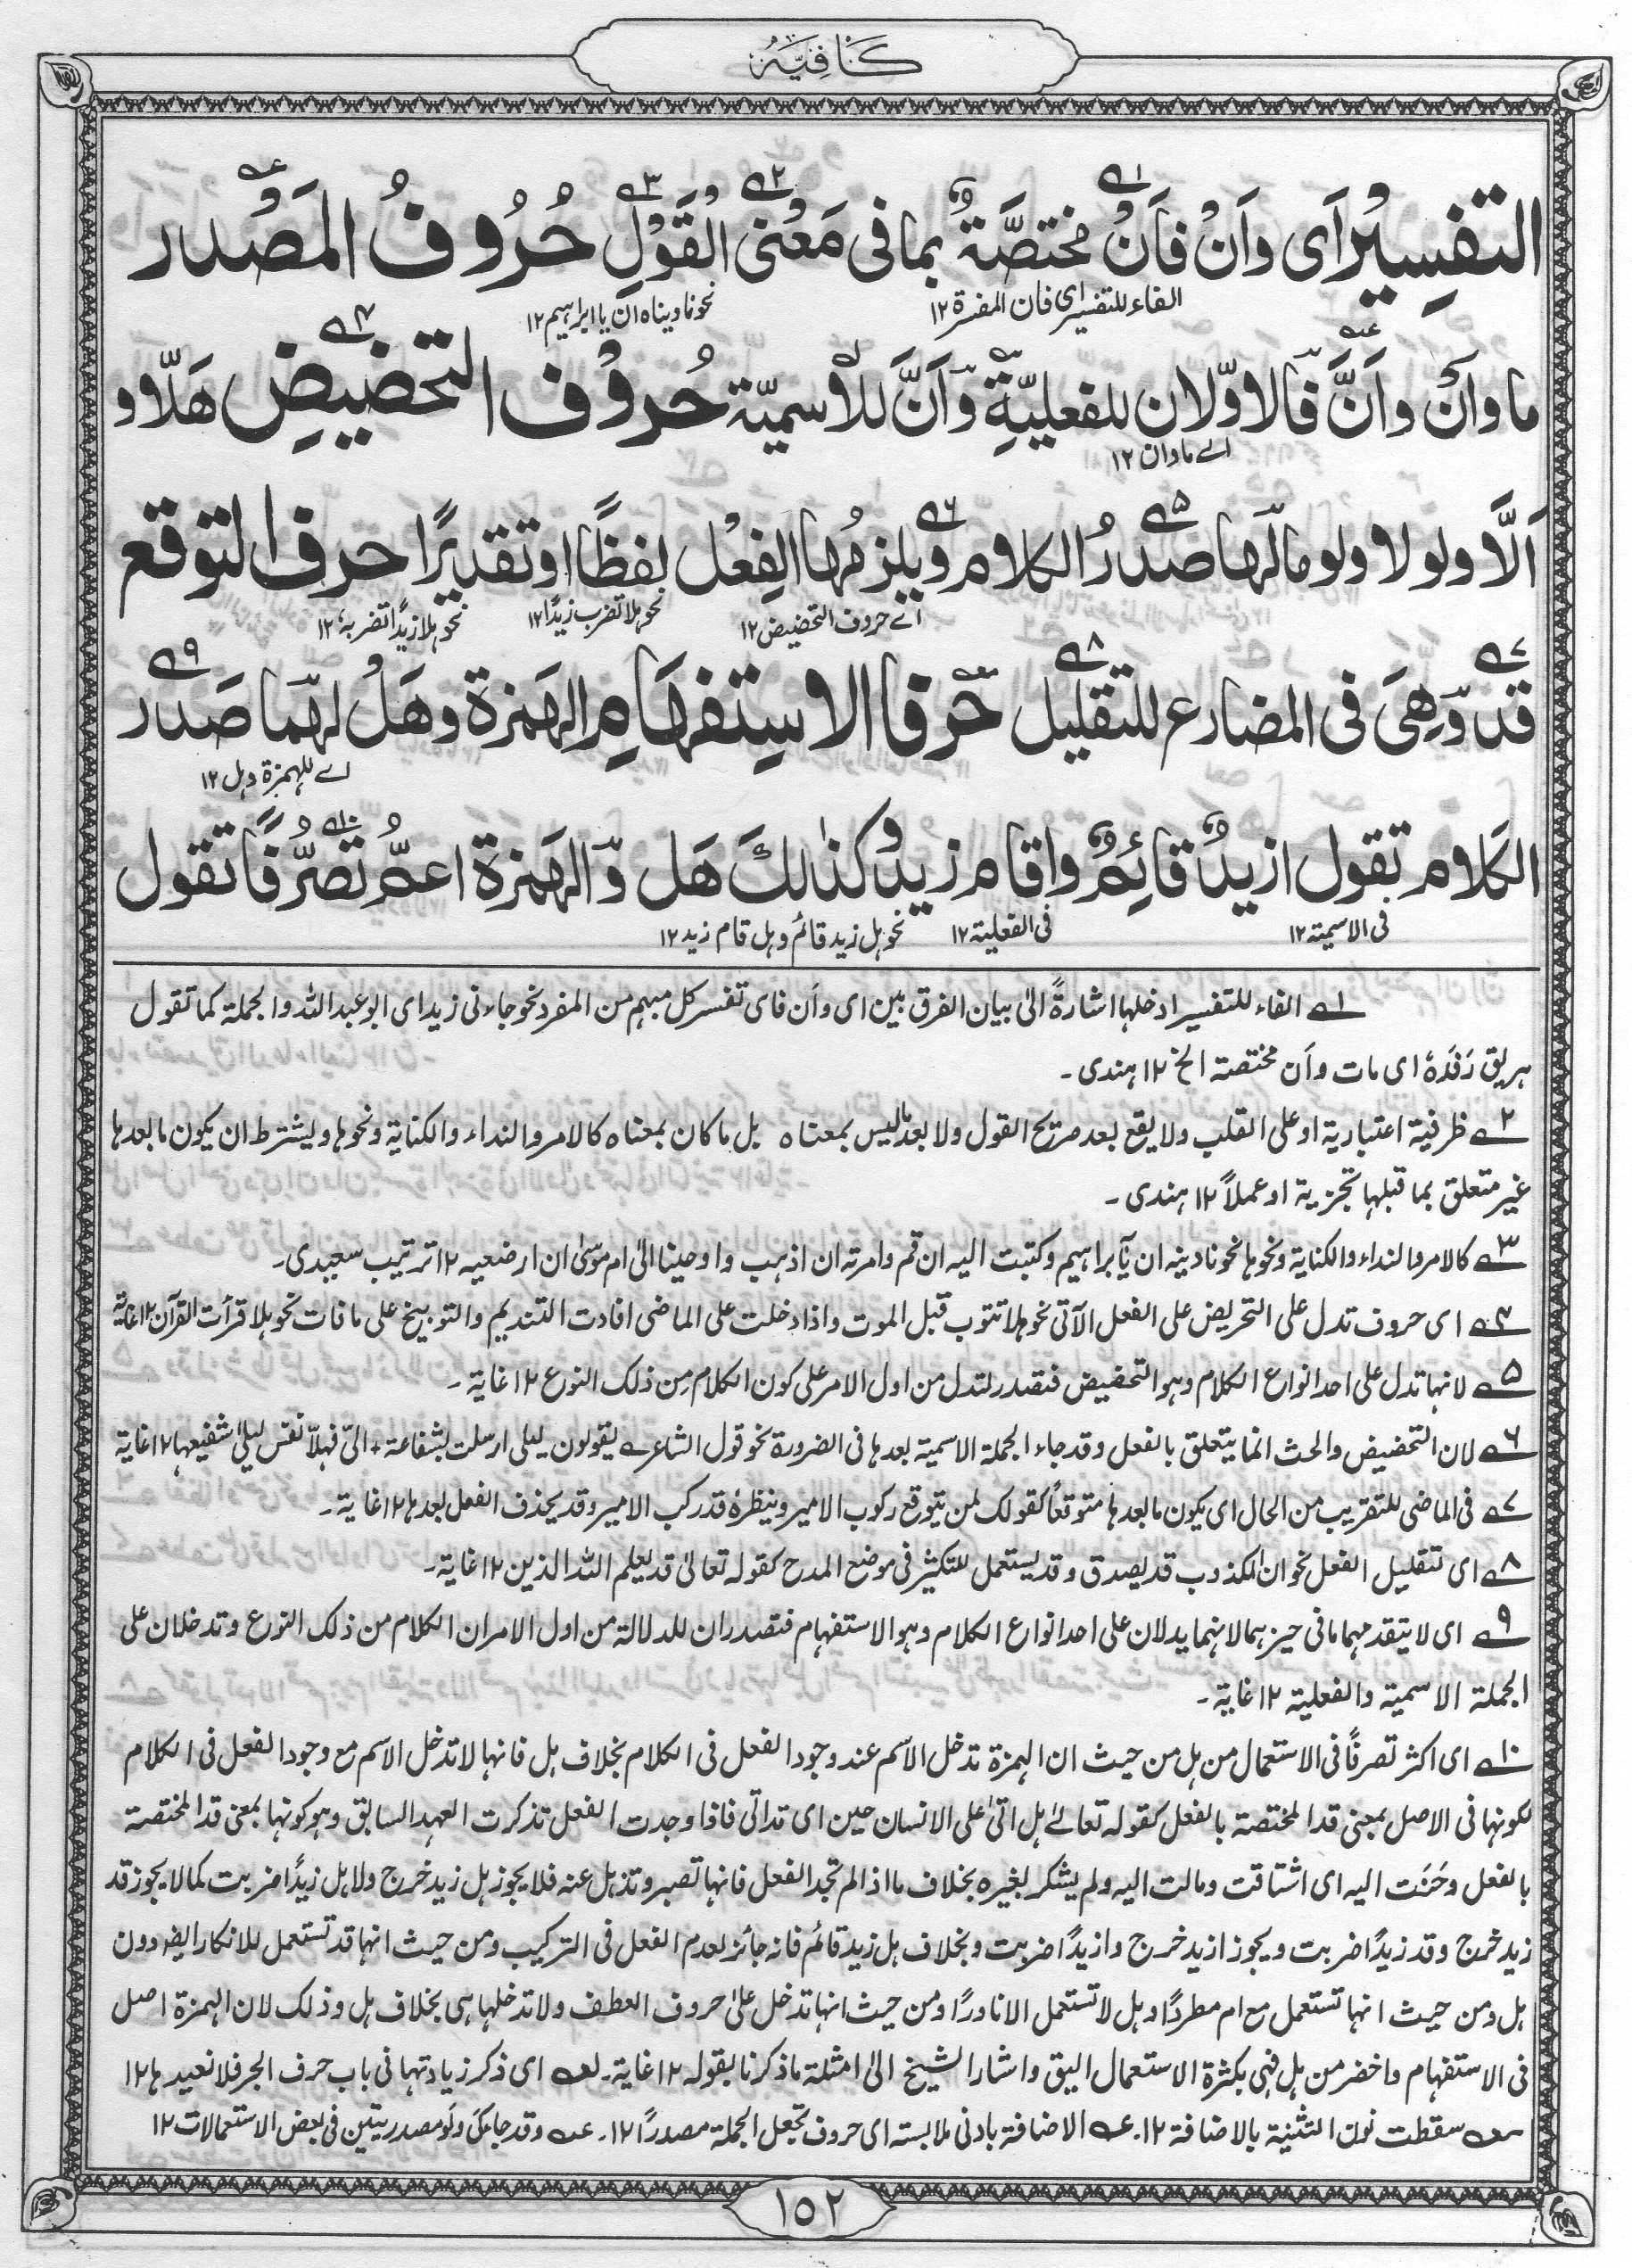 كَافِيَہ
التفسِيْر اَى واَنْ فاَنْ مختصَّةٌ بما فى مَعْنى القَوْلِ حُرُوفُ المَصْدر
الفاء للتفسير اى فان المفسرة ١٢ نحو ناديناه ان يا ابراهيم ١٢
ما واَنْ واَنَّ فالاوّلان للفعليّةِ وَاَنَّ للاسميّة حُروْف التحضيضِ هَلّا و
اے ما وان ١٢
اَلَّا ولولا ولوما لَها صدرُ الكلام ويلزمُها الفِعْل لفظًا او تقديرًا حرف التوقع
اے حروف التحضيض ١٢ نحو ہلا تضرب زيدًا ١٢ نحو ہلا زيدًا تضربہ ١٢
قد وَهِىَ فى المضارع للتقليل حرفا الاسِتفهَامِ الهَمزة وهَلْ لهَما صَدر
اے للہمزة وہل ١٢
الكَلام تقول ازيدٌ قائِمٌ واقام زيدٌ كذٰلكَ هَل وَالهَمزة اعمُّ تصرُّفًا تقول
فى الاسمية ١٢ فى الفعلية ١٢ نحو ہل زيد قائم وہل قام زيد ١٢
١ے الفاء للتفسير ادخلها اشارةً الىٰ بيان الفرق بين اى واَن فاى تفسر كل مبہم من المفرد نحو جاءنى زيد اى ابو عبد اللہ والجملة كما تقول
ہريق رَفدُہٗ اى مات واَن مختصة الخ ١٢ ہندى۔
٢ے ظرفية اعتبارية او على القلب ولا يقع بعد صريح القول ولا بعد ما ليس بمعناه بل ما كان بمعناه كالامر والنداء والكناية ونحوہا ويشترط ان يكون ما بعدہا
غير متعلق بما قبلہا تجزية او عملاً ١٢ ہندى۔
٣ے كالامر والنداء والكناية ونحوہا نحو نادينه ان يآبراہيم وكتبت اليہ ان قم وامرتہ ان اذہب واوحينا الىٰ ام موسىٰ ان ارضعيہ ١٢ ترتيب سعيدى۔
٤ے اى حروف تدل على التحريض على الفعل الآتى نحو ہلا تتوب قبل الموت واذا دخلت على الماضى افادت التنديم والتوبيخ على ما فات نحو ہلا قرأت القرآن ١٢ غاية
٥ے لانہا تدل على احد انواع الكلام وہو التحضيض فتصدر لتدل من اول الامر على كون الكلام مِن ذلك النوع ١٢ غاية۔
٦ے لان التحضيض والحث انما يتعلق بالفعل وقد جاء الجملة الاسمية بعدہا فى الضرورة نحو قول الشاعر ے يقولون ليلى ارسلت بشفاعة ٭ الىّ فہلاّ نفس ليلىٰ شفيعہا ١٢ غاية
٧ے فى الماضى للتقريب من الحال اى يكون ما بعدہا متوقعاً كقولك لمن يتوقع ركوب الامير وينظرہٗ قد ركب الامير وقد يحذف الفعل بعدہا ١٢ غاية۔
٨ے اى لتقليل الفعل نحو ان الكذوب قد يصدق وقد يستعمل للتكثير فى موضع المدح كقولہ تعالىٰ قد يعلم اللہ الذين ١٢ غاية۔
٩ے اى لا يتقدمہما ما فى حيزہما لانہما يدلان على احد انواع الكلام وہو الاستفہام فتصدران للدلالة من اول الامر ان الكلام من ذلك النوع وتدخلان على
الجملة الاسمية والفعلية ١٢ غاية۔
١٠ے اى اكثر تصرفًا فى الاستعمال من ہل من حيث ان الہمزة تدخل الاسم عند وجود الفعل فى الكلام بخلاف ہل فانہا لا تدخل الاسم مع وجود الفعل فى الكلام
لكونہا فى الاصل بمعنى قد المختصة بالفعل كقولہ تعالےٰ ہل اتىٰ على الانسان حين اى قد اتى فاذا وجدت الفعل تذكرت العہد السابق وہو كونہا بمعنى قد المختصة
بالفعل وحَنَت اليہ اى اشتاقت ومالت اليہ ولم يشكر لغيرہ بخلاف ما اذا لم تجد الفعل فانہا تصبر وتذہل عنہ فلا يجوز ہل زيد خرج ولا ہل زيدًا ضربت كما لا يجوز قد
زيد خرج وقد زيدًا ضربت ويجوز ازيد خرج وازيدًا ضربت وبخلاف ہل زيد قائم فانہ جائز لعدم الفعل فى التركيب ومن حيث انہا قد تستعمل للانكار ايضا دون
ہل ومن حيث انہا تستعمل مع ام مطردًا وہل لا تستعمل الا نادرًا ومن حيث انہا تدخل علىٰ حروف العطف ولا تدخلہا ہى بخلاف ہل وذلك لان الہمزة اصل
فى الاستفہام واخضر من ہل فہى بكثرة الاستعمال اليق واشار الشيخ الىٰ امثلة ما ذكرنا بقولہ ١٢ غاية۔ لعہ اى ذكر زيادتہا فى باب حرف الجر فلا نعيدہا ١٢
سہ سقطت نون التثنية بالاضافة ١٢۔ عہ الاضافة بادنى ملابسة اى حروف تجعل الجملة مصدرًا ١٢۔ عہ وقد جاء كَى ولَو مصدريتين فى بعض الاستعمالات ١٢
١٥٢